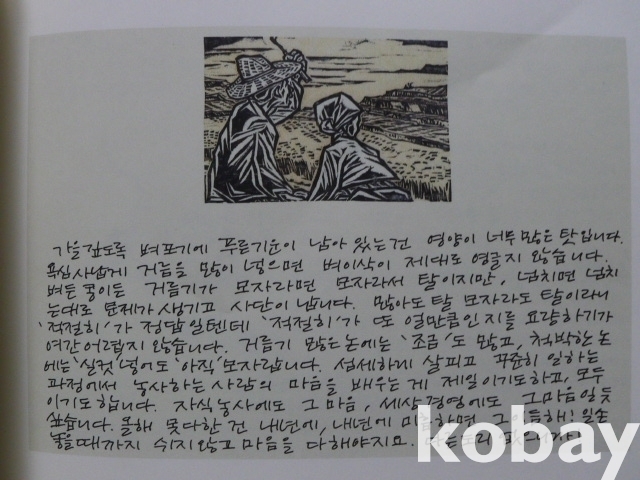 가을깊도록 벼포기에 푸른기운이 남아 있는건 영양이 너무 많은 탓입니다.
욕심사납게 거름을 많이 넣으면 벼이삭이 제대로 영글지 않습니다.
벼든 콩이든 거름기가 모자라면 모자라서 탈이지만, 넘치면 넘치
는대로 문제가 생기고 사단이 납니다. 많아도 탈 모자라도 탈이라니
'적절히'가 정답일텐데 '적절히'가 또 얼만큼인지를 요량하기가
여간 어렵지 않습니다. 거름기 많은 논에는 '조금'도 많고, 척박한 논
에는 '실컷' 넣어도 '아직' 모자랍니다. 섬세하게 살피고 꾸준히 일하는
과정에서 농사하는 사람의 마음을 배우는게 제일이기도하고, 모두
이기도 합니다. 자식농사에도 그 마음, 세상경영에도 그마음일듯
싶습니다. 올해 못다한 건 내년에, 내년에 미흡하면 그 이듬해! 일손
놓을때까지 쉬지않고 마음을 다해야지요.
kobay